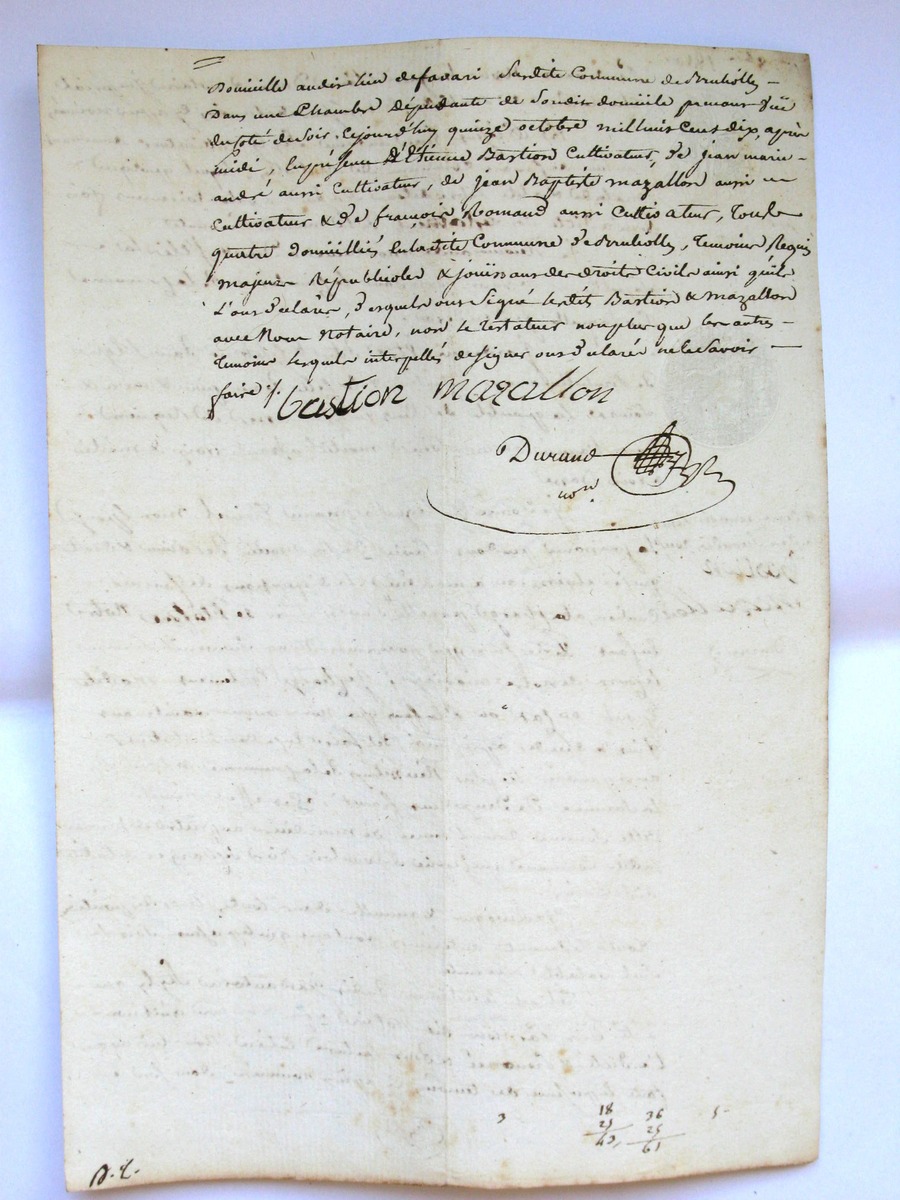 Domicille audit lieu de favari Susdite Commune de Brullolles -
Dans une Chambre dépendante de Son dit domicile prenant Jüë
du Coté de Soir. Cejourd'huy quinze octobre mil huit Cent dix, après
midi, En présence D'Etienne Bastion Cultivateur, De jean marie -
andré aussi Cultivateur, de jean Baptiste mazallon aussi -
Cultivateur & De françois Romand aussi Cultivateur, Tous le
quatre Domicilliés En la dite Commune De Brullolles, Temoins Requis
majeurs Républicoles & joüissans des Droits Civils ainsi qu'ils
L'ont Déclaré, Desquels ont Signé lesdits Bastion & mazallon
avec Nous Notaire, non le testateur non plus que les autres -
Temoins lesquels interpellés de signer ont Déclaré ne le Savoir -
faire ./.
bastion mazallon
Durand
nore
3 18 36 5
25 25
43 61